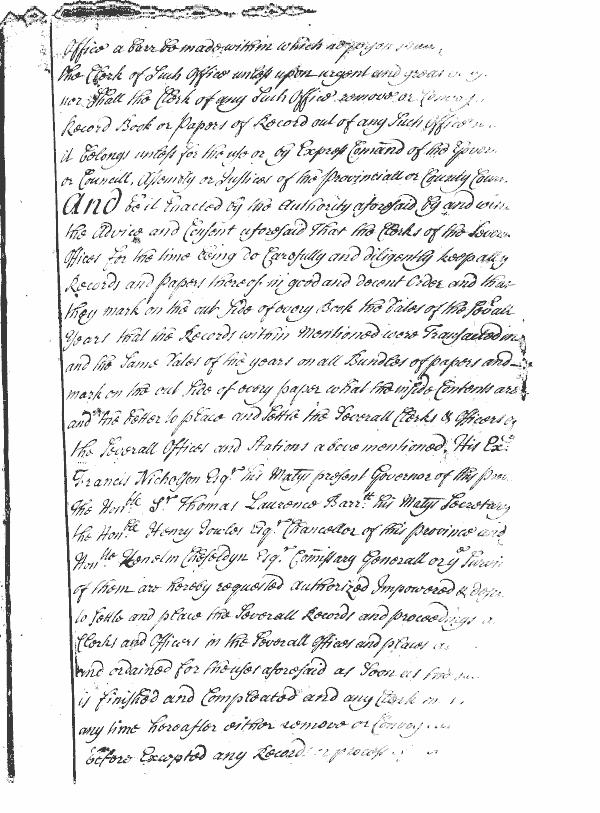 Office a barr be made within which no person
the Clerk of Such Office unless upon urgent and great
nor Shall the Clerk of any Such Office remove or Convey
Record Book or Papers of Record out of any Such Office
it belongs unless for the use or by Express Comand of the Gover
or Councill, Assembly or Justices of the Provinciall or County Court
And be it Enacted by the Authority aforesaid by and with
the Advice and Consent aforesaid That the Clerks of the Severall
Offices for the time being do Carefully and diligently keep all
Records and Papers thereof in good and decent Order and that
they mark on the out Side of every Book the Dates of the Sevall
Years that the Records within mentioned were Transacted in
and the Same Dates of the years on all Bundles of papers and
mark on the out Side of every paper what the inside Contents are
and the better to place and Settle the Severall Clerks & Officers
the Severall Offices and Stations above mentioned, His Ex:
Francis Nicholson Esqr his Matys present Governor of this Prov
the Honble Sr Thomas Laurence Barrtt his Matys Secretary
the Honble Henry Jowles Esqr Chancellor of this Province and
Honble Kenelm Cheseldyn Esqr Comissary Generall or ye
of them are hereby requested authorized Impowered &
to Settle and place the Severall Records and proceedings
Clerks and Officers in the Severall Offices and places
and ordained for the uses aforesaid as Soon as the
is finished and Compleated and any Clerk
any time hereafter either remove or Convey
before Excepted any Record or process